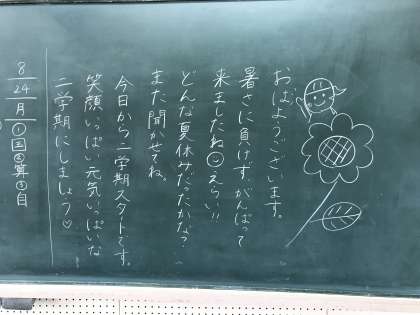 おはようございます。
暑さに負けず、がんばって
来ましたね えらい!!
どんな夏休みだったかな?
また聞かせてね。
今日から二学期スタートです。
笑顔いっぱい元気いっぱいな
二学期にしましょう♡
8/24 月 ①国②算③自